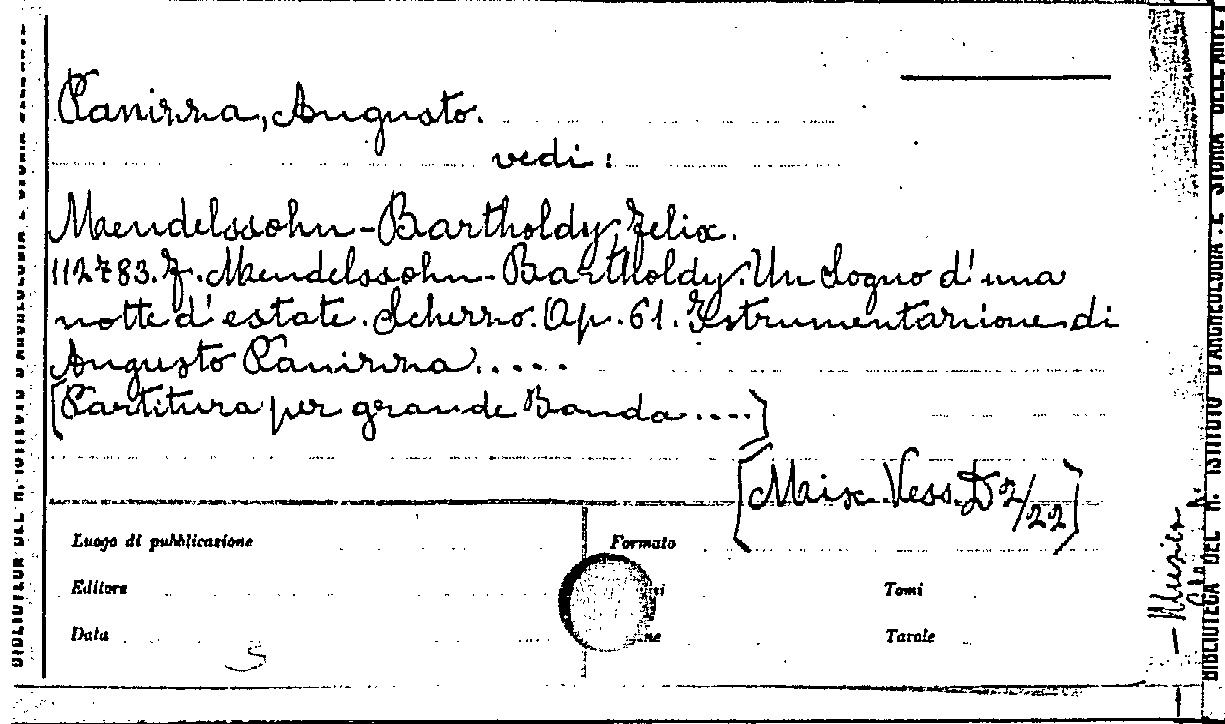 Panizza, Augusto.
vedi:
Mendelssohn-Bartholdy, Felix.
112783. F. Mendelssohn-Bartholdy. Un Sogno d'una
notte d'estate. Scherzo. Op. 61. Istrumentazione di
Augusto Panizza.....
[Partitura per grande Banda....]
[Misc. Vess. D 2/22]
Luogo di pubblicazione
Formato
Editore
Tomi
Data
Tavole
S
Musica
BIBLIOTECA DEL R. ISTITUTO D'ARCHEOLOGIA E STORIA DELL'ARTE